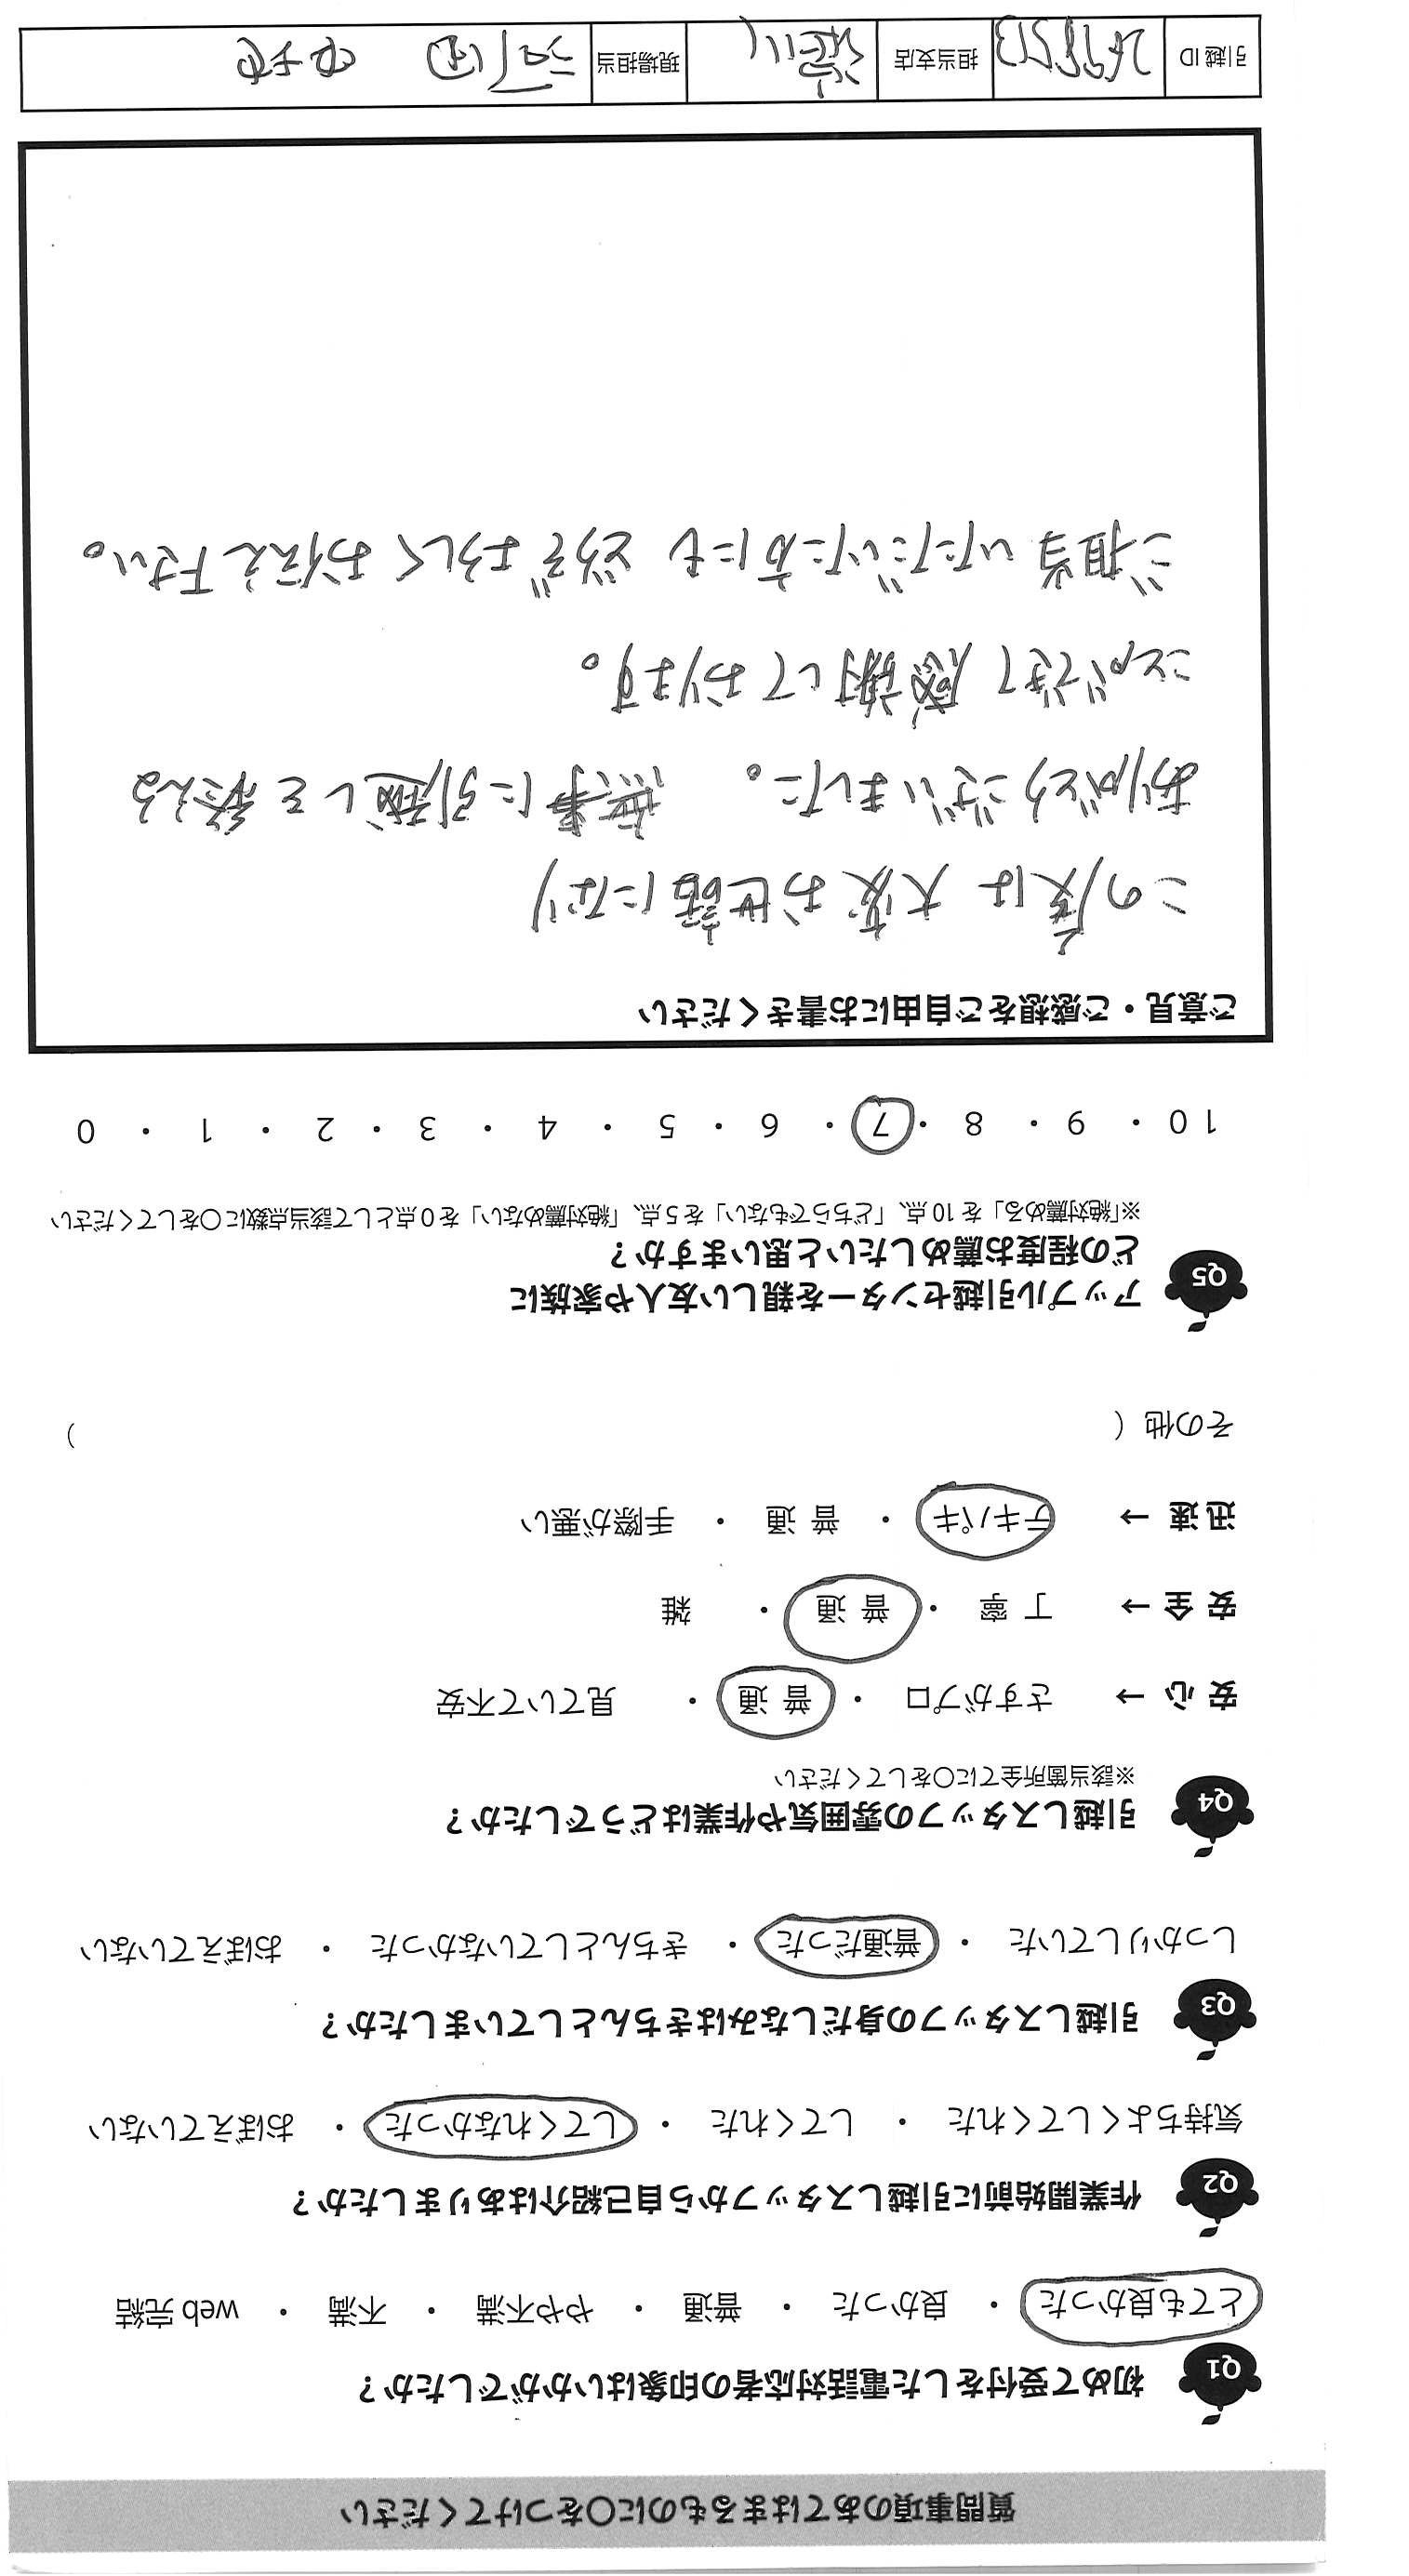 質問事項のあてはまるものに〇をつけてください
Q1 初めて受付をした電話対応者の印象はいかがでしたか？
とても良かった ・ 良かった ・ 普通 ・ やや不満 ・ 不満 ・ web 完結
Q2 作業開始前に引越しスタッフから自己紹介はありましたか？
気持ちよくしてくれた ・ してくれた ・ してくれなかった ・ おぼえていない
Q3 引越しスタッフの身だしなみはきちんとしていましたか？
しっかりしていた ・ 普通だった ・ きちんとしていなかった ・ おぼえていない
Q4 引越しスタッフの雰囲気や作業はどうでしたか？
※該当箇所全てに〇をしてください
安 心 → さすがプロ ・ 普 通 ・ 見ていて不安
安 全 → 丁 寧 ・ 普 通 ・ 雑
迅 速 → テキパキ ・ 普 通 ・ 手際が悪い
その他（ ）
Q5 アップル引越センターを親しい友人や家族に
どの程度お薦めしたいと思いますか？
※「絶対薦める」を 10 点、「どちらでもない」を 5 点、「絶対薦めない」を 0 点として該当点数に〇をしてください
10 ・ 9 ・ 8 ・ 7 ・ 6 ・ 5 ・ 4 ・ 3 ・ 2 ・ 1 ・ 0
ご意見・ご感想をご自由にお書きください
この度は 大変お世話になり
ありがとうございました。 無事に引越しを終える
ことができて 感謝しております。
ご担当いただいた方にも どうぞよろしくお伝え下さい。
引越 ID 担当支店 港川 現場担当